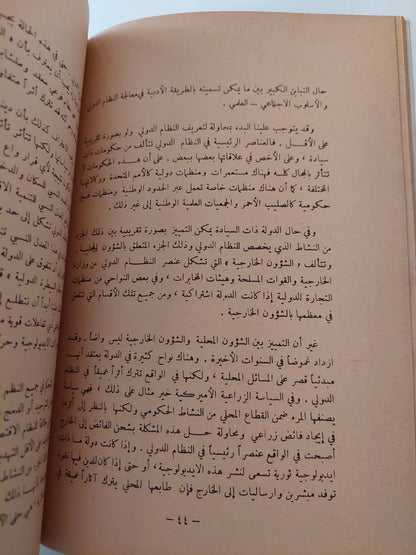 حال التباين الكبير بين ما يمكن تسميته بالطريقة الأدبية في معالجة النظام الدولي
والأسلوب الاجتماعي – العلمي .
وقد يتوجب علينا البدء بمحاولة لتعريف النظام الدولي ولو بصورة تقريبية
على الأقل . فالعناصر الرئيسية في النظام الدولي تتألف من حكومات ذات
سيادة ، وعلى الأخص في علاقاتها بعضها ببعض . على أن هذه الحكومات
تتأثر بالمجال كله فهناك مستعمرات ومنظمات دولية كالأمم المتحدة ووكالاتها
المختلفة ، كما أن هناك منظمات خاصة تعمل عبر الحدود الوطنية ومنظمات غير
حكومية كالصليب الأحمر والجمعيات العلمية الوطنية إلى غير ذلك .
وفي حال الدولة ذات السيادة يمكن التمييز بصورة تقريبية بين ذلك الجزء
من النشاط الذي يخصص للنظام الدولي وذلك الجزء المتعلق بالشؤون المحلية .
وتتألف « الشؤون الخارجية » التي تشكل عنصر النظام الدولي من وزارة
الخارجية والقوات المسلحة وهيئات المخابرات ، وفي بعض النواحي من منظمات
التجارة الدولية إذا كانت الدولة اشتراكية ، ومن جميع تلك الأقسام التي تهتم
في معظمها بالشؤون الخارجية .
غير أن التمييز بين الشؤون المحلية والشؤون الخارجية ليس واضحاً . وقد
ازداد غموضاً في السنوات الأخيرة . وهناك نواح كثيرة في الدولة يعتقد أنها
مبدئياً قصر على المسائل المحلية ، ولكنها في الواقع تترك أثراً عميقاً في النظام
الدولي . وفي السياسة الزراعية الأميركية خير مثال على ذلك ، فهي سياسة
يصنفها المرء ضمن القطاع المحلي من النشاط الحكومي ولكنها بالنظر إلى أثرها
في إيجاد فائض زراعي ومحاولة حل هذه المشكلة بشحن الفائض إلى الخارج
أصبحت في الواقع عنصراً رئيسياً في النظام الدولي . وإذا كانت دولة ما ذات
ايديولوجية ثورية تسعى لنشر هذه الايديولوجية ، أو حتى إذا كان لدين فيها نفوذ
توفد مبشرين وارساليات إلى الخارج فإن طابعها المحلي يترك آثاراً عميقة في
– ٤٤ –